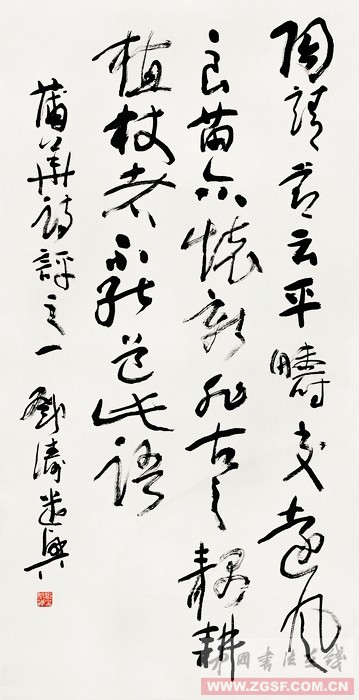 陶靖節云平疇交遠風
良苗亦懷新非古之耦耕
植杖者不能道此語
蒲華詩評之一 劉濤遣興
中国书法在线
WWW.ZGSF.COM.CN